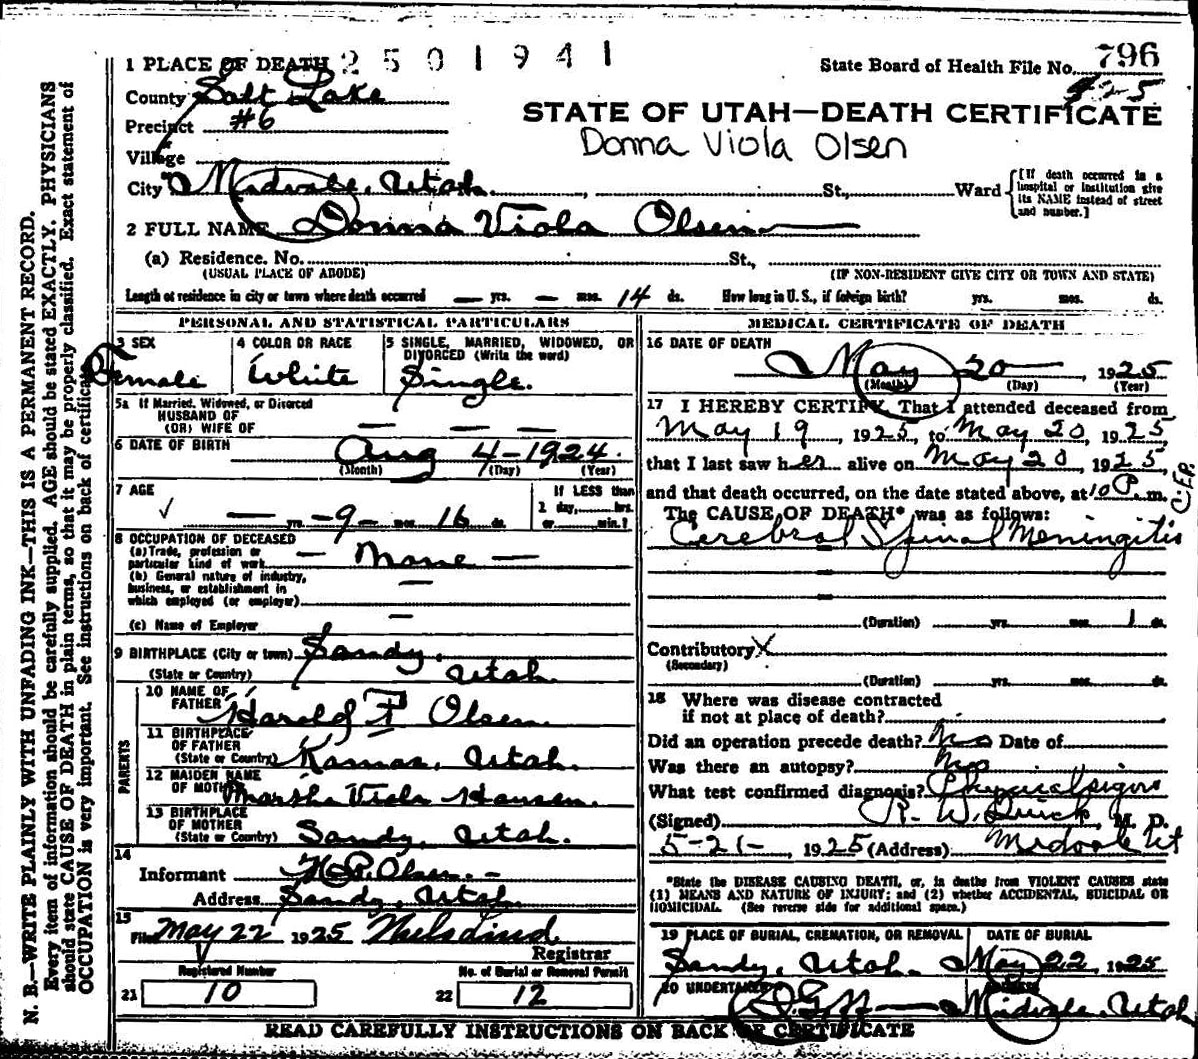 2501941
796
1 PLACE OF DEATH
State Board of Health File No.
County Salt Lake
STATE OF UTAH—DEATH CERTIFICATE
Precinct #6
Donna Viola Olsen
Village
City Midvale, Utah. St., Ward
[If death occurred in a hospital or institution give its NAME instead of street and number.]
2 FULL NAME Donna Viola Olsen
(a) Residence. No. St.,
(USUAL PLACE OF ABODE) (IF NON-RESIDENT GIVE CITY OR TOWN AND STATE)
Length of residence in city or town where death occurred — yrs. — mos. 14 ds. How long in U. S., if foreign birth? yrs. mos. ds.
PERSONAL AND STATISTICAL PARTICULARS
3 SEX Female
4 COLOR OR RACE White
5 SINGLE, MARRIED, WIDOWED, OR DIVORCED (Write the word) Single.
5a If Married, Widowed, or Divorced
HUSBAND OF
(OR) WIFE OF — — —
6 DATE OF BIRTH Aug 4-1924.
(Month) (Day) (Year)
7 AGE
— yrs. -9- mos. 16 ds.
If LESS than 1 day, hrs. or min.?
8 OCCUPATION OF DECEASED
(a) Trade, profession or particular kind of work — None —
(b) General nature of industry, business, or establishment in which employed (or employer) —
(c) Name of Employer —
9 BIRTHPLACE (City or town) Sandy,
(State or Country) Utah.
PARENTS
10 NAME OF FATHER Harold P Olsen.
11 BIRTHPLACE OF FATHER
(State or Country) Kamas, Utah.
12 MAIDEN NAME OF MOTHER Martha Viola Hansen.
13 BIRTHPLACE OF MOTHER
(State or Country) Sandy, Utah.
14
Informant H. P. Olsen. -
Address Sandy, Utah.
15
Filed May 22 1925
Registrar
Registered Number
No. of Burial or Removal Permit
21 10 22 12
MEDICAL CERTIFICATE OF DEATH
16 DATE OF DEATH
May 20 1925
(Month) (Day) (Year)
17 I HEREBY CERTIFY, That I attended deceased from
May 19, 1925, to May 20, 1925,
that I last saw her alive on May 20, 1925,
and that death occurred, on the date stated above, at 10 P. m.
The CAUSE OF DEATH* was as follows:
Cerebral Spinal Meningitis
(Duration) yrs. mos. 1 ds.
Contributory X
(Secondary)
(Duration) yrs. mos. ds.
18 Where was disease contracted
if not at place of death?
Did an operation precede death? No Date of
Was there an autopsy? No
What test confirmed diagnosis? Physical signs
(Signed) R. W. Quick, M. D.
5-21-, 1925 (Address) Midvale Ut
*State the DISEASE CAUSING DEATH, or, in deaths from VIOLENT CAUSES state
(1) MEANS AND NATURE OF INJURY; and (2) whether ACCIDENTAL, SUICIDAL OR
HOMICIDAL. (See reverse side for additional space.)
19 PLACE OF BURIAL, CREMATION, OR REMOVAL DATE OF BURIAL
Sandy, Utah. May 22, 1925
20 UNDERTAKER Midvale, Utah
READ CAREFULLY INSTRUCTIONS ON BACK OF CERTIFICATE
N. B.—WRITE PLAINLY WITH UNFADING INK—THIS IS A PERMANENT RECORD.
Every item of information should be carefully supplied. AGE should be stated EXACTLY. PHYSICIANS
should state CAUSE OF DEATH in plain terms, so that it may be properly classified. Exact statement of
OCCUPATION is very important. See instructions on back of certificate.